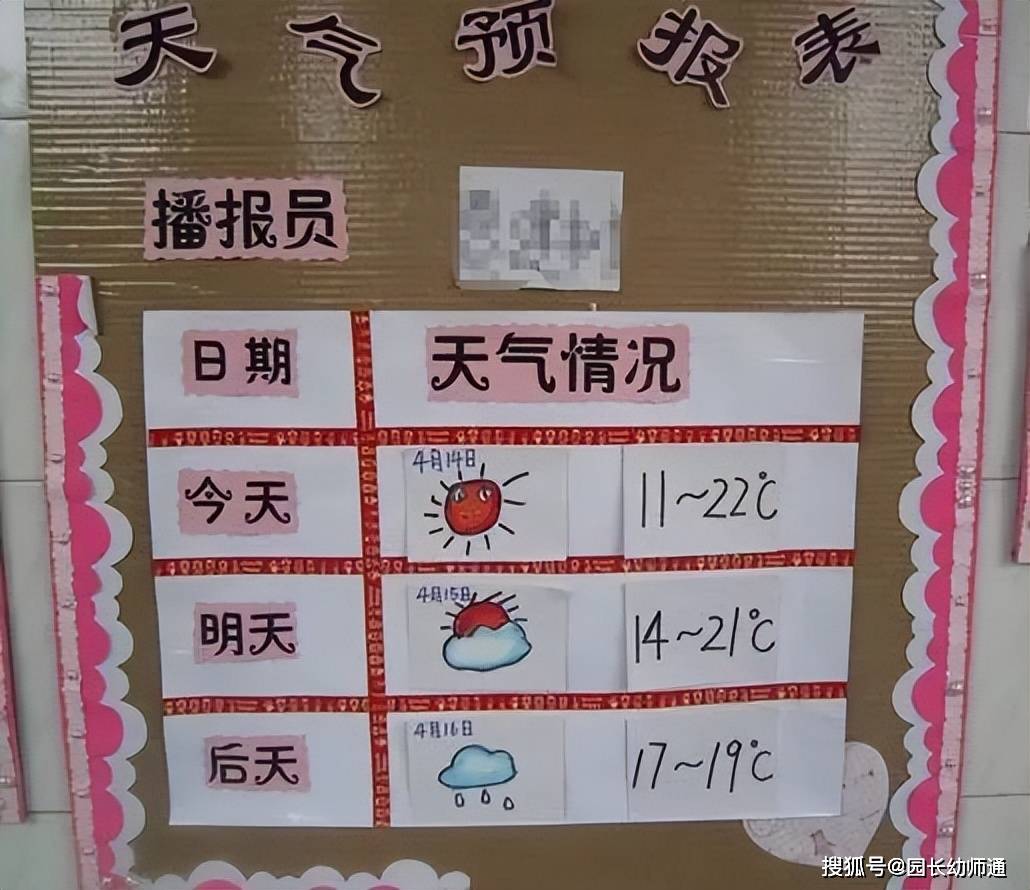 天气预报表
播报员
日期 天气情况
今天 4月14日 11~22℃
明天 4月15日 14~21℃
后天 4月16日 17~19℃
搜狐号@园长幼师通